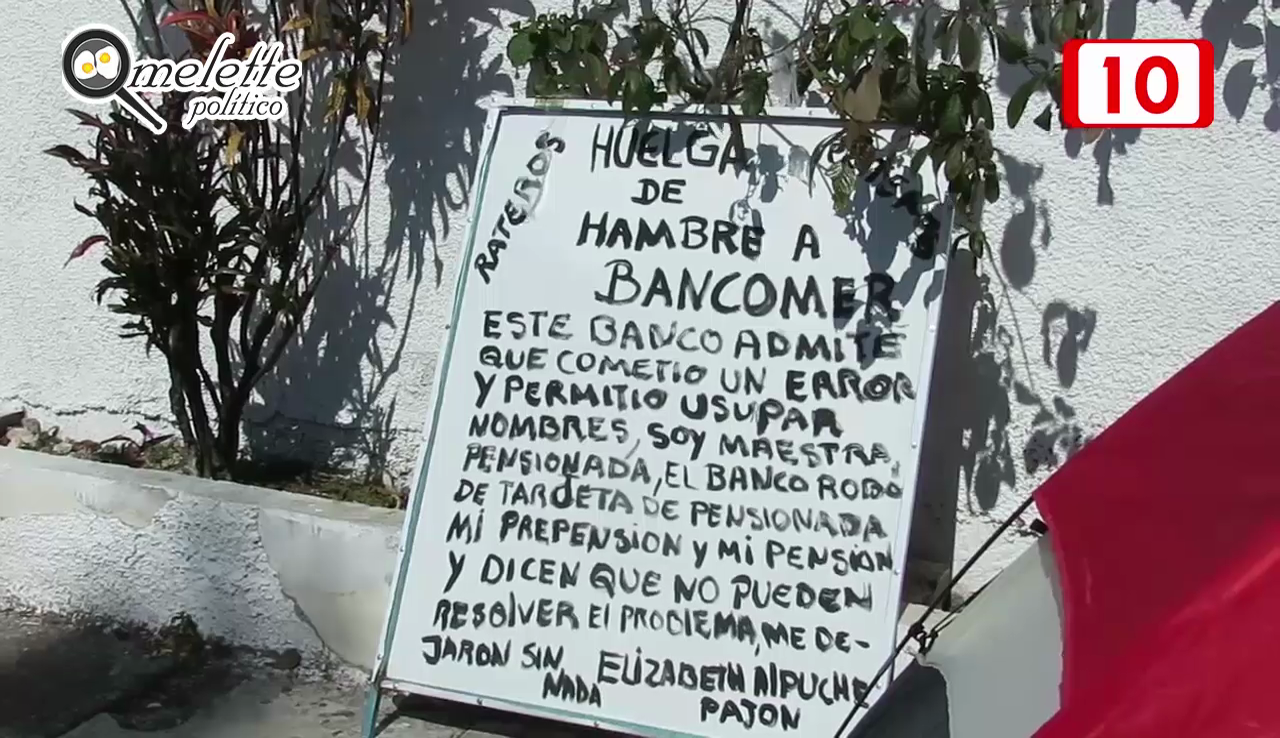 Omelette
político
10
RATEROS
HUELGA
DE
HAMBRE A
BANCOMER
ESTE BANCO ADMITE
QUE COMETIO UN ERROR
Y PERMITIO USUPAR
NOMBRES, SOY MAESTRA
PENSIONADA, EL BANCO ROBO
DE TARJETA DE PENSIONADA
MI PREPENSION Y MI PENSION
Y DICEN QUE NO PUEDEN
RESOLVER El PROBLEMA, ME DE-
JARON SIN
NADA
ELIZABETH AIPUCHE
PAJON